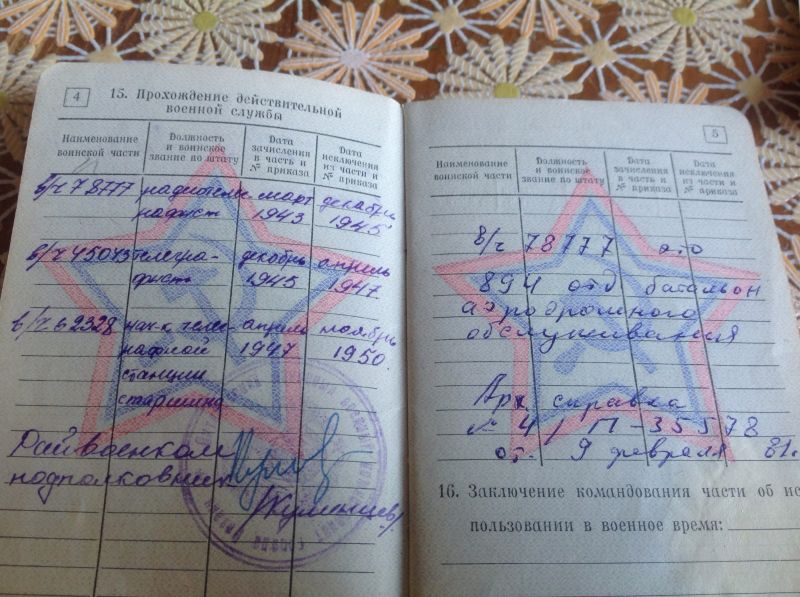 4
15. Прохождение действительной
военной службы
Наименование воинской части
Должность и воинское звание по штату
Дата зачисления в часть и № приказа
Дата исключения из части и № приказа
в/ч 78777 март декабрь
1943 1945
в/ч 45043 телегра- декабрь апрель
фист 1945 1947
в/ч 62328 нач-к теле- апрель ноябрь
графной 1947 1950.
станции
старшина
Райвоенком
подполковник
5
Наименование воинской части
Должность и воинское звание по штату
Дата зачисления в часть и № приказа
Дата исключения из части и № приказа
в/ч 78777 это
894 отд батальон
аэродромного
обслуживания
Арх. справка
№ 4/П-35578
от. 9 февраля 81.
16. Заключение командования части об ис
пользовании в военное время: